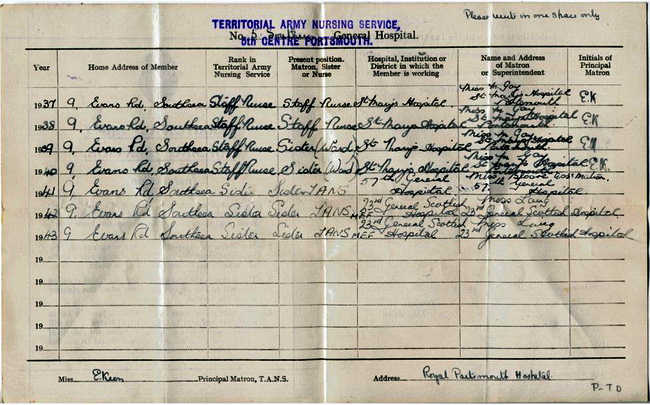 Please write in one space only
TERRITORIAL ARMY NURSING SERVICE,
No. 5 Southern General Hospital.
5th CENTRE PORTSMOUTH.
Year Home Address of Member Rank in Territorial Army Nursing Service Present position. Matron, Sister or Nurse Hospital, Institution or District in which the Member is working Name and Address of Matron or Superintendent Initials of Principal Matron
1937 9, Evans Rd, Southsea Staff Nurse Staff Nurse St Mary's Hospital Miss Gay St Mary's Hospital Portsmouth E.K
1938 9, Evans Rd, Southsea Staff Nurse Staff Nurse St Mary's Hospital Miss Gay St Mary's Hospital E.K
1939 9, Evans Rd, Southsea Staff Nurse Sister (Ward) St Mary's Hospital Miss Gay E.K
1940 9, Evans Rd, Southsea Staff Nurse Sister (Ward) St Mary's Hospital Miss Hospital E.K
1941 9 Evans Rd Southsea Sister TANS 57th General Hospital Miss 57th General Hospital
1942 9 Evans Rd Southsea Sister Sister TANS 23rd General Scottish Hospital MEF Miss 23rd General Scottish Hospital
1943 9 Evans Rd Southsea Sister Sister TANS 23rd General Scottish Hospital MEF Miss 23rd General Scottish Hospital
19
19
19
19
19
Miss E Keen Principal Matron, T.A.N.S. Address Royal Portsmouth Hospital
P.T.O